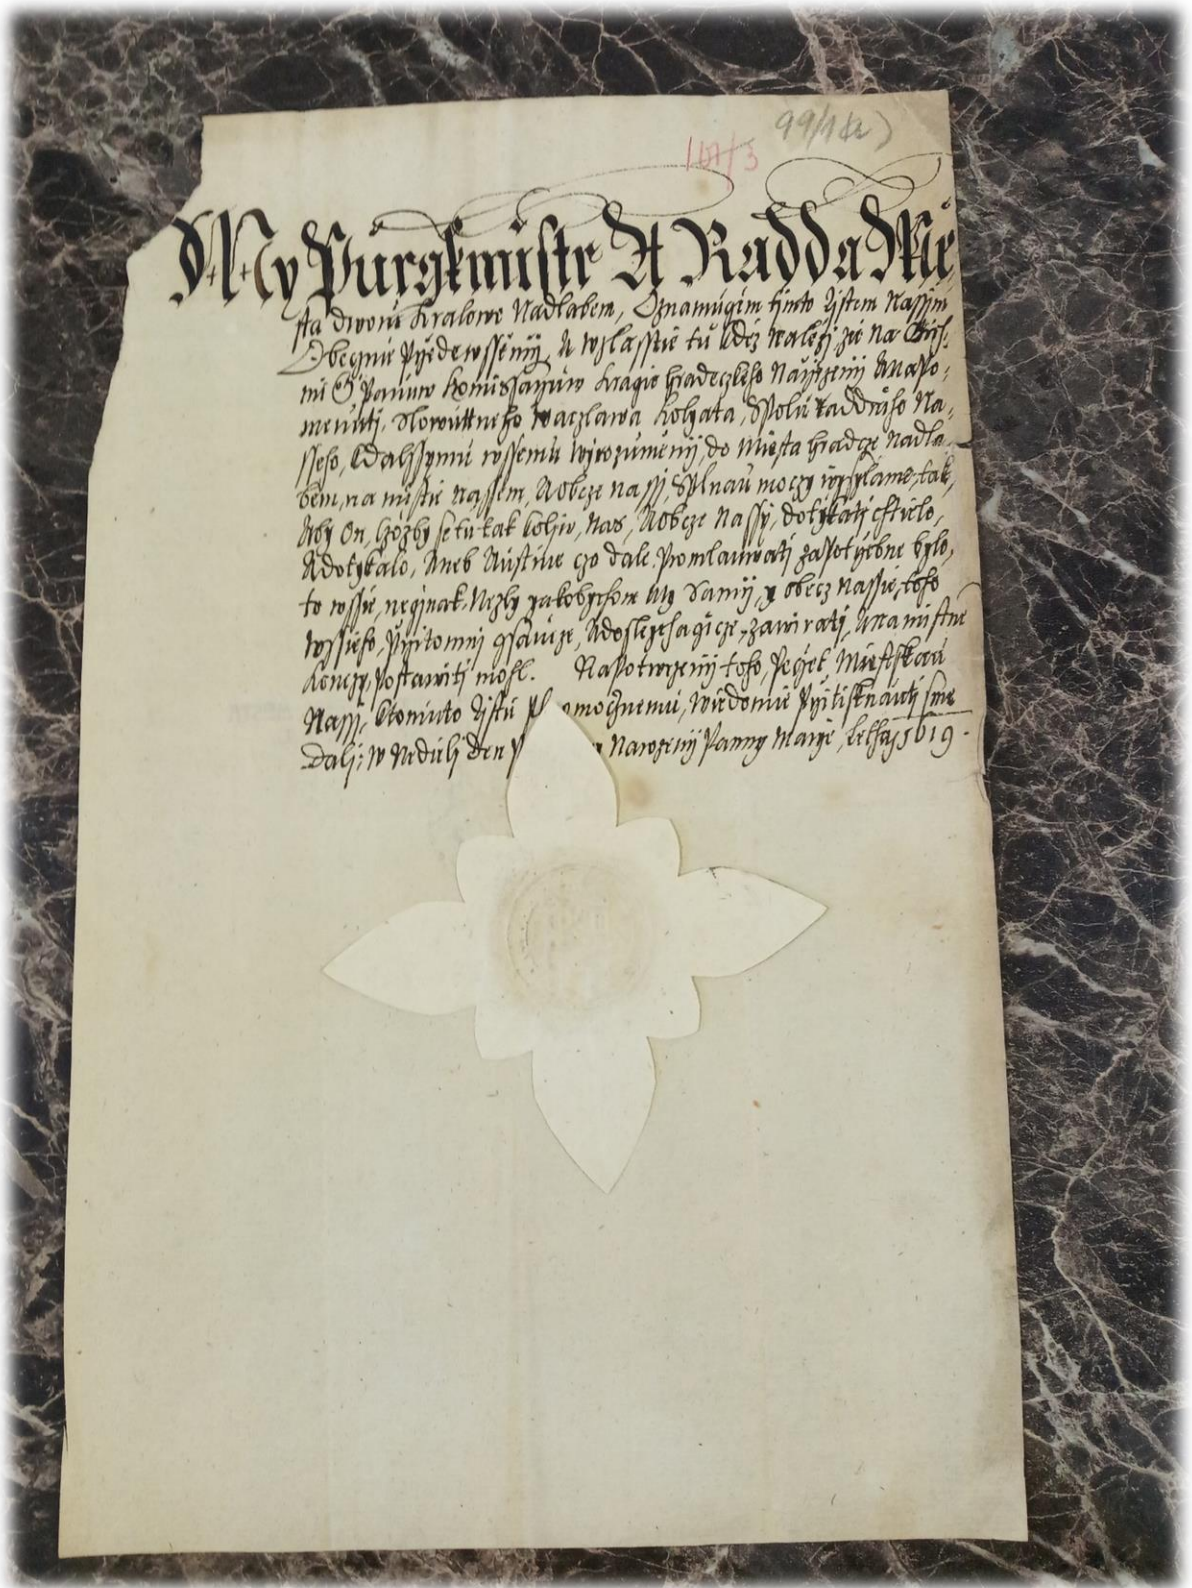 99/1
My Purgkmistr A Radda Mie
sta dworu Kralowe Nadlabem, Oznamugem tijmto Listem Nassym
Obecznie Przedewssemy, A wzlasstie tu kdez nalezj ze na
mi Panuw Komissarzuw Kragie Hradeczkeho Narzizeny Anapo:
menutj, Slowutneho Waczlawa, Spolu Raddniho Na:
sseho, kdalssymu wssemu wyrozumenj, do Miesta Hradcze Nadla:
bem, na mistie nassem, A obcze nassj, Splnau moczy wysylame, tak,
Aby On, czozby se tu kak koljw, Nas, A obcze Nassy, dotykatj chtielo,
A dotykalo, Aneb Austnie czo dale Promlauwatj zapotrzebne bylo,
to wssie, neginak, Nezly yakobychom My Samy, y obecz Nassie, toho
wssieho, Przitomni gsaucze, A zawiratj, Anamistne
Konczy, Postawitj mohl. Napotwrzeny toho, Peczet Miestskau
Nassj, ktomuto Listu mocznemu, wiedomie Przitisknautj sme
Dalj; W Nedielj den Narozenj Panny Marye, Letha 1619.